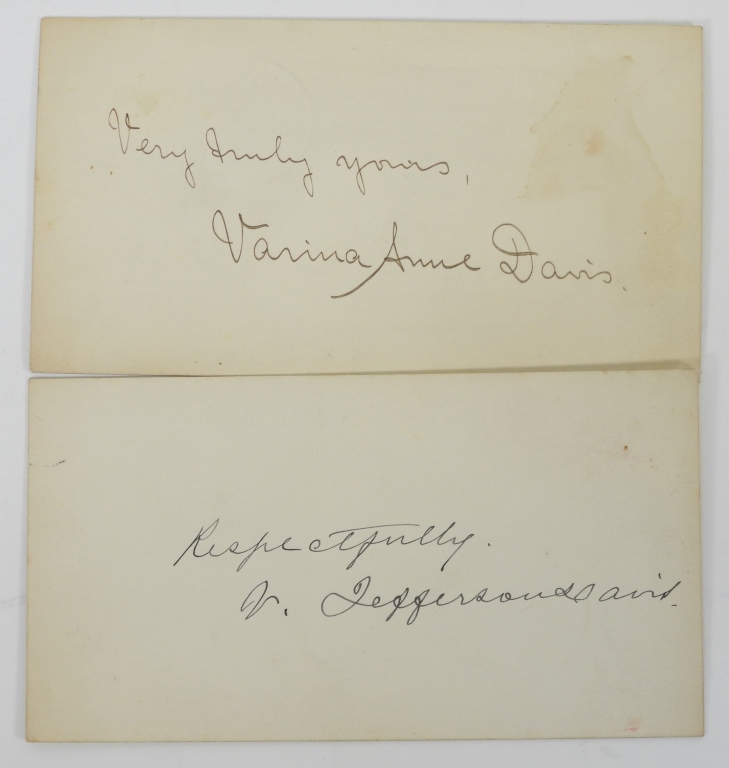 Very truly yours,
Varina Anne Davis.
Respectfully.
V. Jefferson Davis.